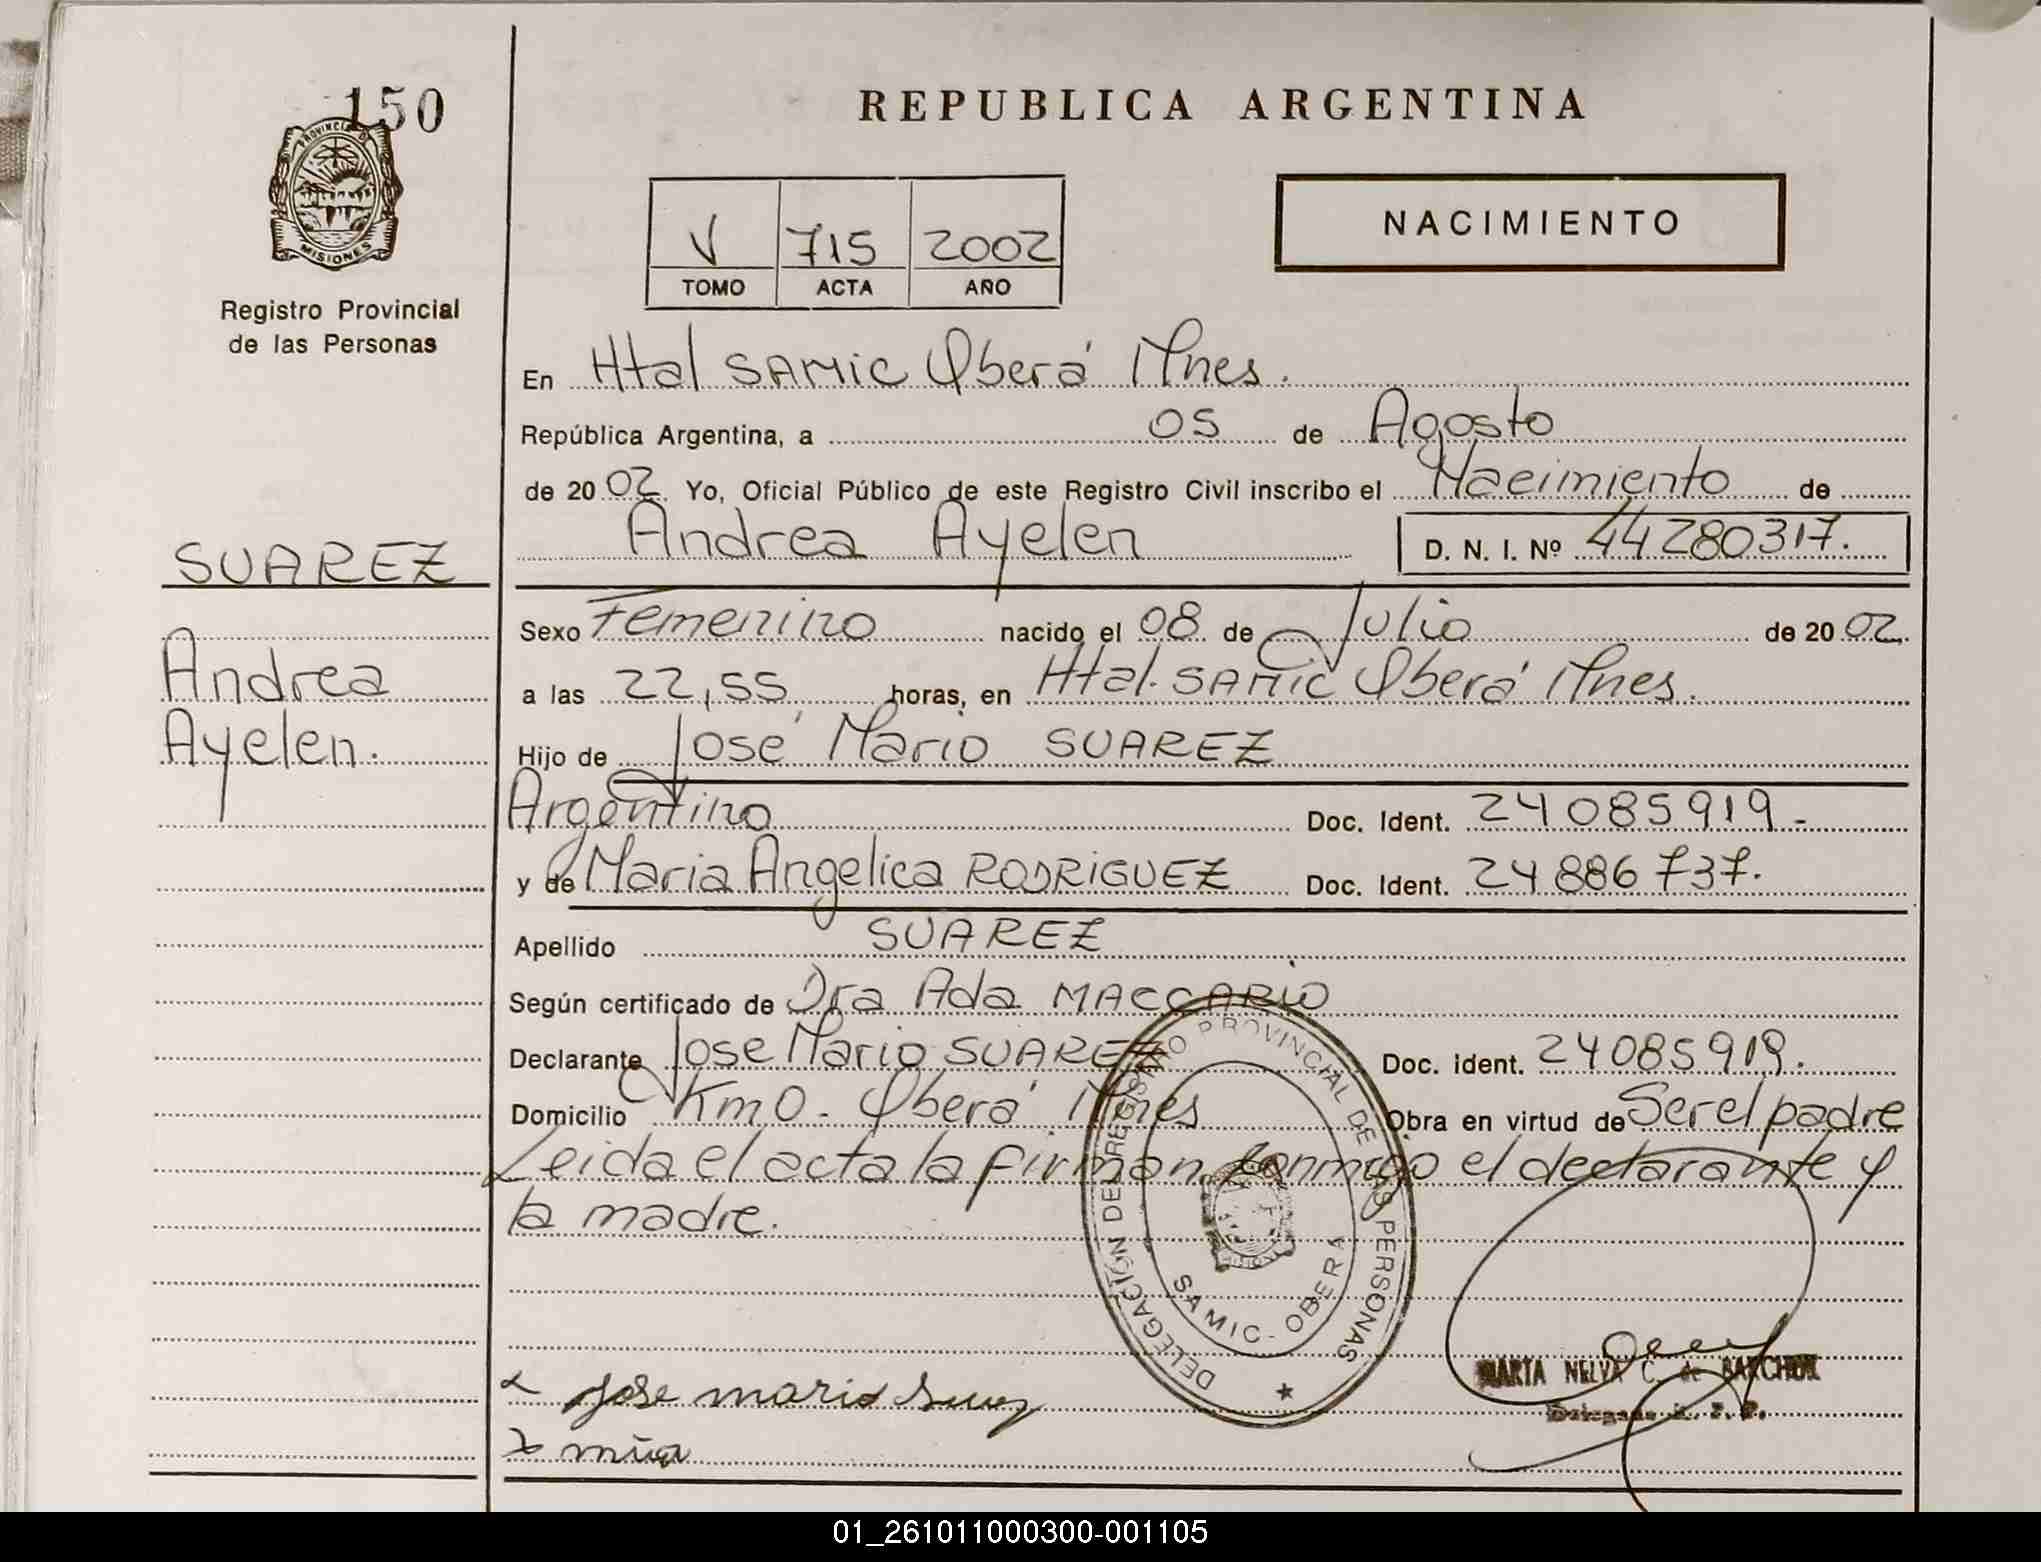 150
PROVINCIA DE
MISIONES
Registro Provincial
de las Personas
REPUBLICA ARGENTINA
V 715 2002
TOMO ACTA AÑO
NACIMIENTO
En Htal SAMIC Oberá Mnes.
República Argentina, a 05 de Agosto
de 20 02. Yo, Oficial Público de este Registro Civil inscribo el Nacimiento de
Andrea Ayelen D. N. I. Nº 44280317.
SUAREZ
Andrea
Ayelen.
Sexo Femenino nacido el 08 de Julio de 20 02
a las 22,55 horas, en Htal. SAMIC Oberá Mnes.
Hijo de José Mario SUAREZ
Argentino Doc. Ident. 24085919-
y de Maria Angelica RODRIGUEZ Doc. Ident. 24886737.
Apellido SUAREZ
Según certificado de Dra Ada MACCARIO
Declarante Jose Mario SUAREZ Doc. Ident. 24085919.
Domicilio Km 0 - Oberá Mnes Obra en virtud de Ser el padre
Leida el acta la firman conmigo el declarante y
la madre.
DELEGACIÓN DEL REGISTRO PROVINCIAL DE LAS PERSONAS
SAMIC - OBERA
MARTA NELVA C. de
Delegada R. P. P.
x Jose mario Suarez
x
01_261011000300-001105